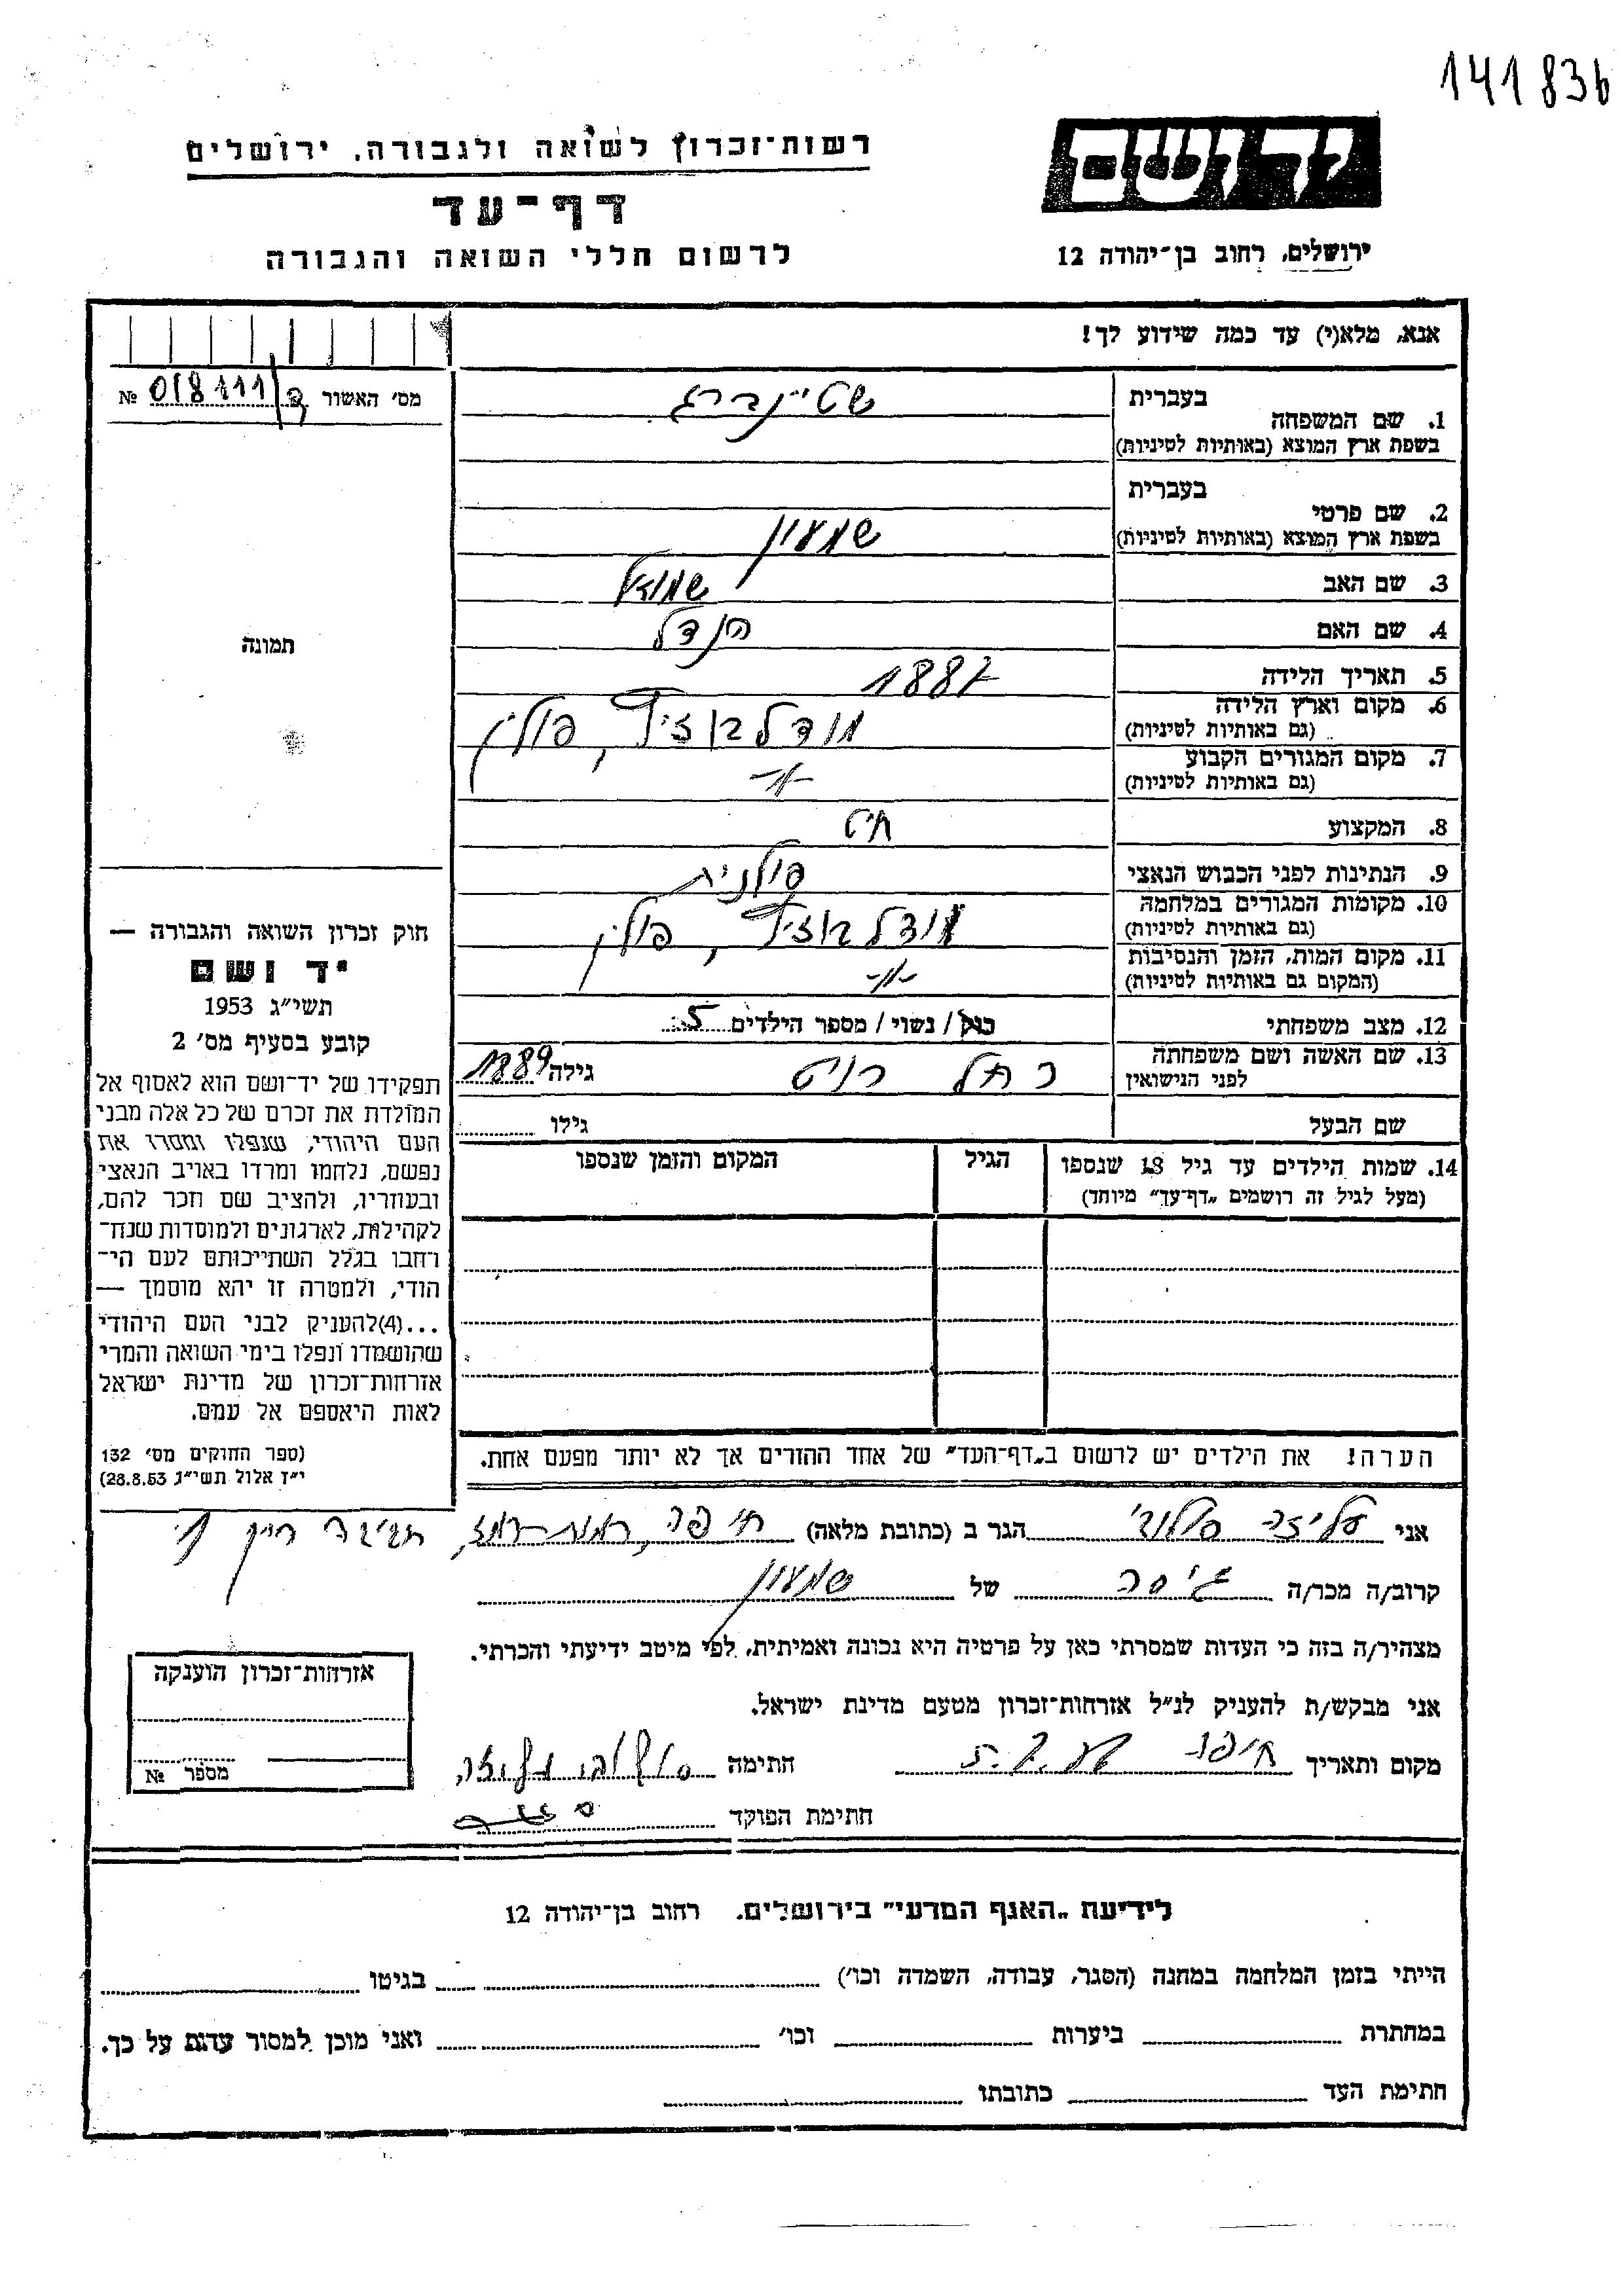 141836
יד ושם
ירושלים, רחוב בן־יהודה 12
רשות־זכרון לשואה ולגבורה, ירושלים
דף־עד
לרשום חללי השואה והגבורה
אנא, מלא(י) עד כמה שידוע לך!
מס׳ האשור № 018111
1. שם המשפחה
בעברית שטיינברג
בשפת ארץ המוצא (באותיות לטיניות)
2. שם פרטי
בעברית
בשפת ארץ המוצא (באותיות לטיניות) שמעון
3. שם האב שמואל
4. שם האם הנדל
5. תאריך הלידה 1887
6. מקום וארץ הלידה פולין
(גם באותיות לטיניות)
7. מקום המגורים הקבוע -״-
(גם באותיות לטיניות)
8. המקצוע חיט
9. הנתינות לפני הכבוש הנאצי פולנית
10. מקומות המגורים במלחמה פולין
(גם באותיות לטיניות)
11. מקום המות, הזמן והנסיבות -״-
(המקום גם באותיות לטיניות)
12. מצב משפחתי רווק / נשוי / מספר הילדים 5
13. שם האשה ושם משפחתה רחל גילה 1889
לפני הנישואין
שם הבעל גילו
14. שמות הילדים עד גיל 18 שנספו הגיל המקום והזמן שנספו
(מעל לגיל זה רושמים „דף־עד״ מיוחד)
הערה! את הילדים יש לרשום ב„דף־העד״ של אחד ההורים אך לא יותר מפעם אחת.
תמונה
חוק זכרון השואה והגבורה —
יד ושם
תשי״ג 1953
קובע בסעיף מס׳ 2
תפקידו של יד־ושם הוא לאסוף אל
המולדת את זכרם של כל אלה מבני
העם היהודי, שנפלו ומסרו את
נפשם, נלחמו ומרדו באויב הנאצי
ובעוזריו, ולהציב שם וזכר להם,
לקהילות, לארגונים ולמוסדות שנח־
רחבו בגלל השתייכותם לעם הי־
הודי, ולמטרה זו יהא מוסמך —
...(4)להעניק לבני העם היהודי
שהושמדו ונפלו בימי השואה והמרי
אזרחות־זכרון של מדינת ישראל
לאות היאספם אל עמם.
(ספר החוקים מס׳ 132
י״ז אלול תשי״ג 28.8.53)
אני עליזה הגר ב (כתובת מלאה) חיפה, רמות-רמז,
קרוב/ה מכר/ה גיסה של שמעון
מצהיר/ה בזה כי העדות שמסרתי כאן על פרטיה היא נכונה ואמיתית, לפי מיטב ידיעתי והכרתי.
אני מבקש/ת להעניק לנ״ל אזרחות־זכרון מטעם מדינת ישראל.
מקום ותאריך חיפה חתימה
חתימת הפוקד
אזרחות־זכרון הוענקה
מספר №
לידיעת „האגף המדעי״ בירושלים. רחוב בן־יהודה 12
הייתי בזמן המלחמה במחנה (הסגר, עבודה, השמדה וכו׳) בגיטו
במחתרת ביערות וכו׳ ואני מוכן למסור עדות על כך.
חתימת העד כתובתו